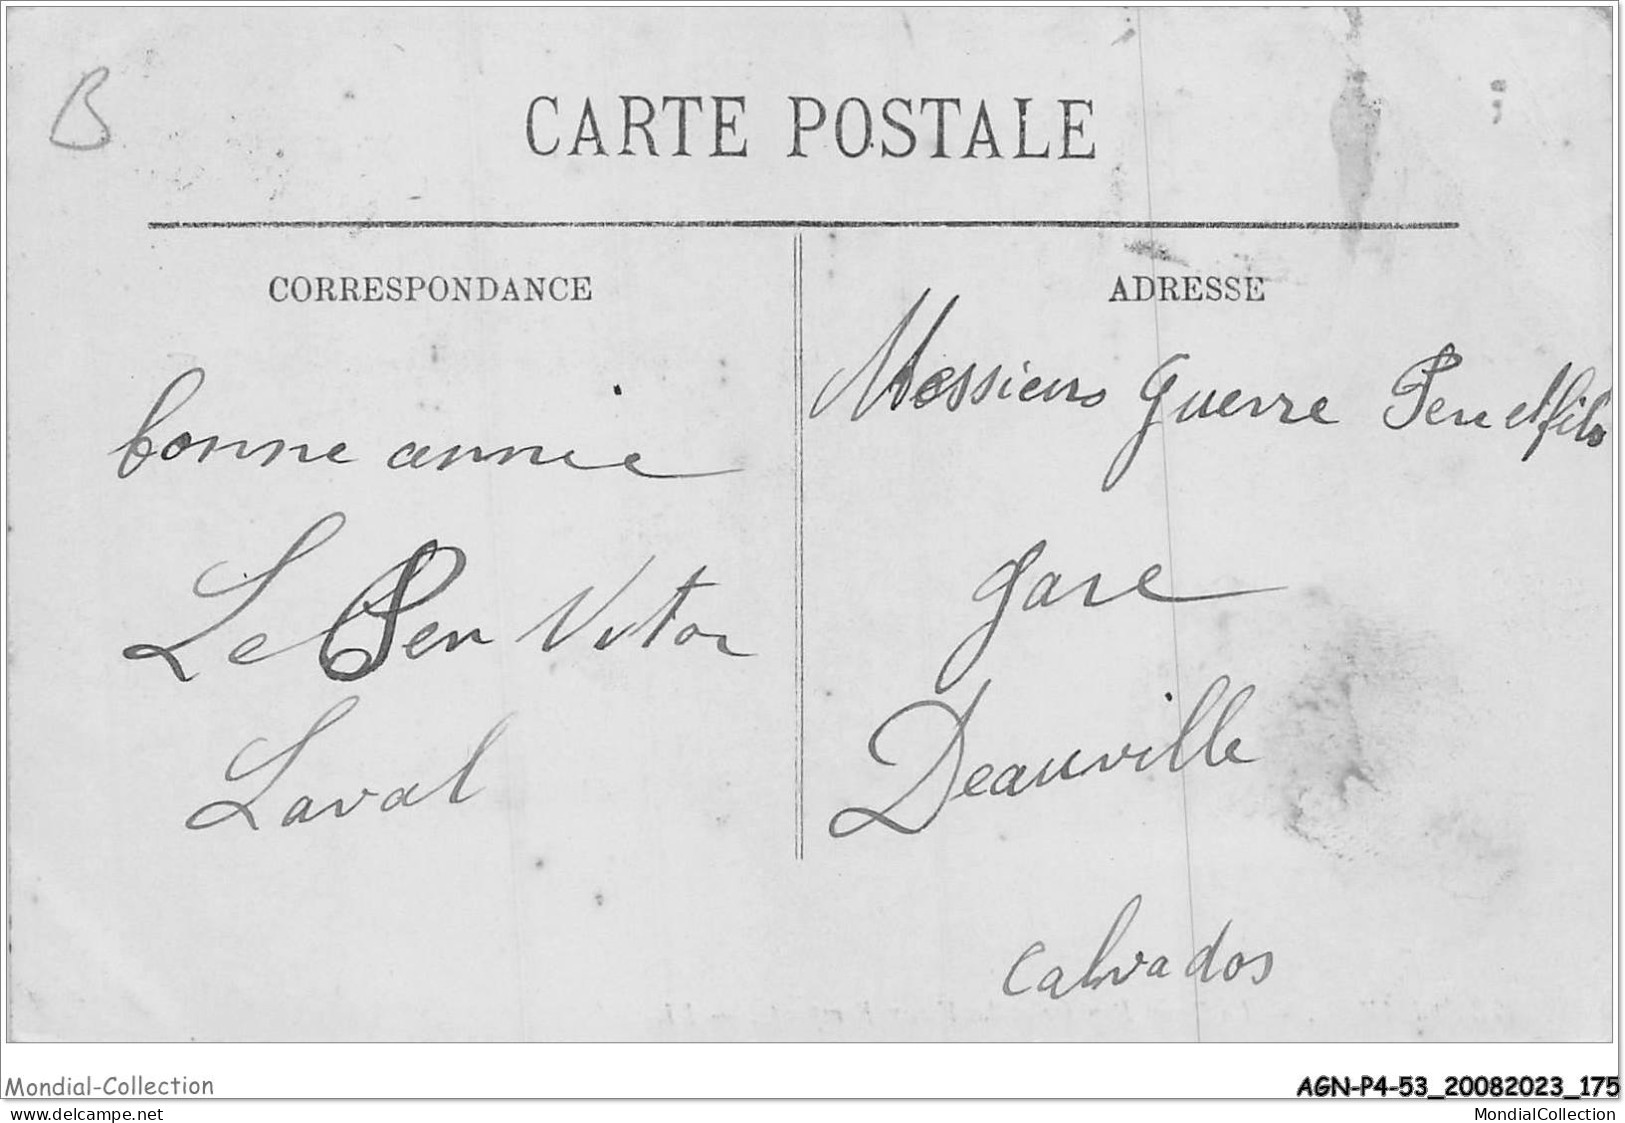 B
CARTE POSTALE
CORRESPONDANCE
bonne annie
Le Pen Vitor
Laval
ADRESSE
Messieurs guerre Pere et fils
gare
Deauville
Calvados
Mondial-Collection
AGN-P4-53_20082023_175
www.delcampe.net
MondialCollection